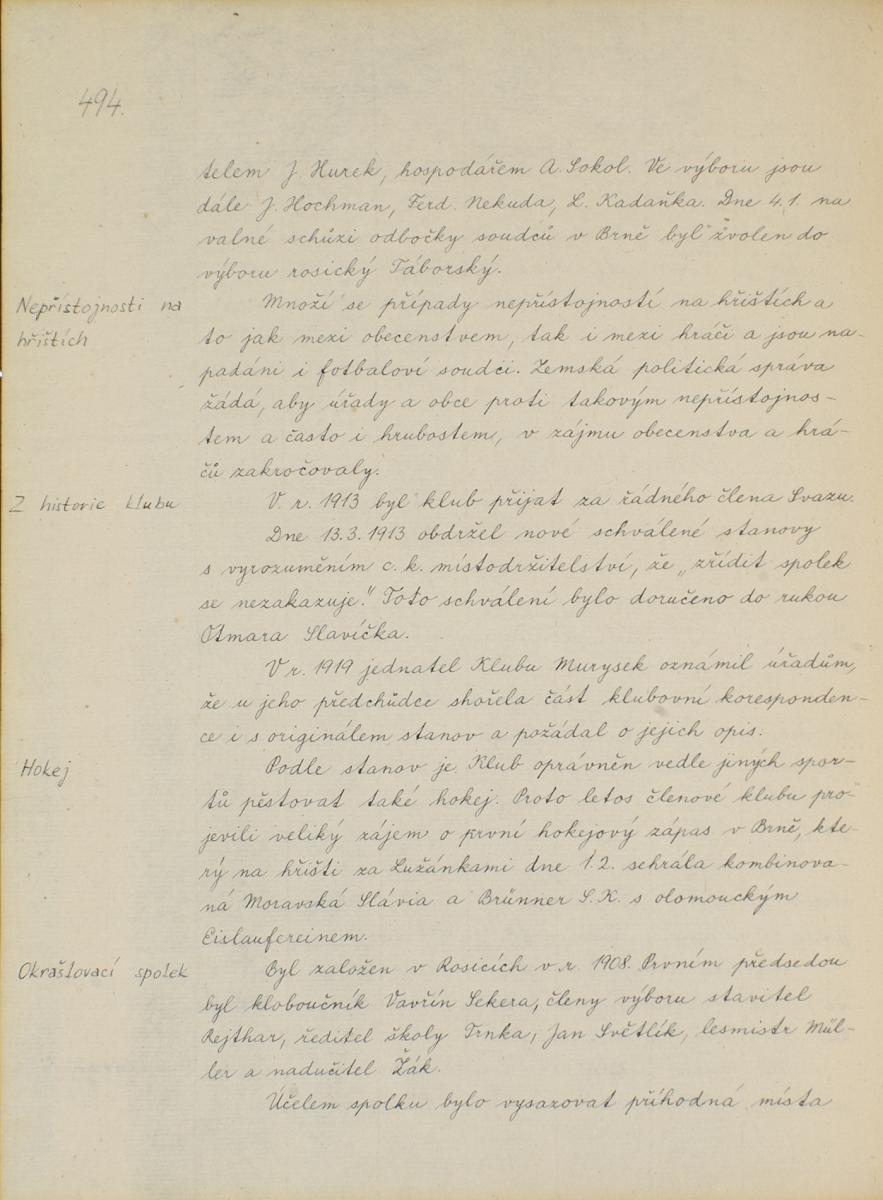 494.
telem J. Hurek, hospodářem A. Sokol. Ve výboru jsou
dále J. Hochman, Ferd. Nekuda, L. Kadaňka. Dne 4.1. na
valné schůzi odbočky soudců v Brně byl zvolen do
výboru rosický Táborský.
Nepřístojnosti na
hřištích
Množí se případy nepřístojností na hřištích a
to jak mezi obecenstvem, tak i mezi hráči a jsou na-
padáni i fotbaloví soudci. Zemská politická správa
žádá, aby úřady a obce proti takovým nepřístojnos-
tem a často i hrubostem, v zájmu obecenstva a hrá-
čů zakročovaly.
Z historie klubu
V. r. 1913 byl klub přijat za řádného člena Svazu.
Dne 13.3.1913 obdržel nové schválené stanovy
s vyrozuměním c. k. místodržitelství, že „zřídit spolek
se nezakazuje." Toto schválení bylo doručeno do rukou
Otmara Slavíčka.
V r. 1919 jednatel Klubu Murysek oznámil úřadům,
že u jeho předchůdce shořela část klubovní koresponden-
ce i s originálem stanov a požádal o jejich opis.
Hokej
Podle stanov je Klub oprávněn vedle jiných spor-
tů pěstovat také hokej. Proto letos členové klubu pro-
jevili veliký zájem o první hokejový zápas v Brně, kte-
rý na hřišti za Lužánkami dne 1.2. sehrála kombinova-
ná Moravská Slávia a Brünner S.K. s olomouckým
Eislaufereinem.
Okrašlovací spolek
Byl založen v Rosicích v r. 1908. Prvním předsedou
byl kloboučník Vavřín Sekera, členy výboru stavitel
Rejthar, ředitel školy Trnka, Jan Světlík, lesmistr Mül-
ler a nadučitel Žák.
Účelem spolku bylo vysazovat příhodná místa